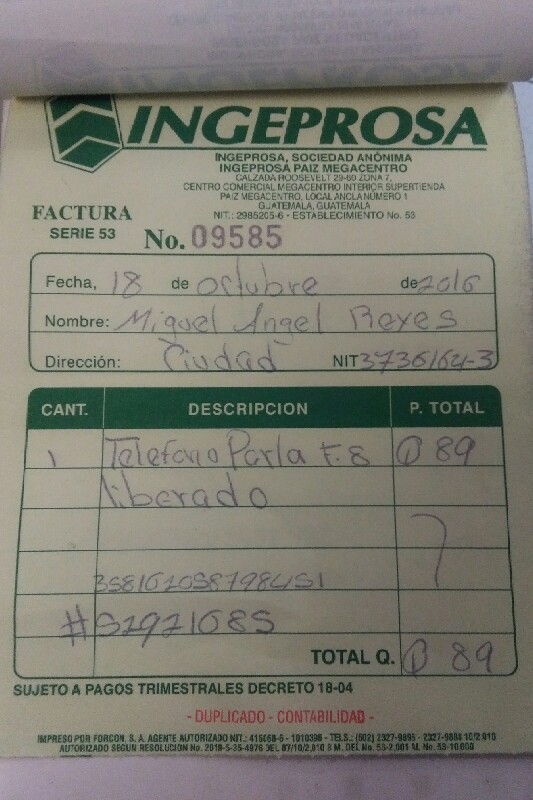 INGEPROSA
INGEPROSA, SOCIEDAD ANÓNIMA
INGEPROSA PAIZ MEGACENTRO
CALZADA ROOSEVELT 29-60 ZONA 7,
CENTRO COMERCIAL MEGACENTRO INTERIOR SUPERTIENDA
PAIZ MEGACENTRO, LOCAL ANCLA NÚMERO 1
GUATEMALA, GUATEMALA
NIT.: 2985205-6 - ESTABLECIMIENTO No. 53
FACTURA
SERIE 53
No. 09585
Fecha, 18 de octubre de 2016
Nombre: Miguel Angel Reyes
Dirección: Ciudad NIT 3736164-3
CANT. DESCRIPCION P. TOTAL
1 Telefono Parla F.8 Q 89
liberado
358162058798451
#52921085
TOTAL Q. Q 89
SUJETO A PAGOS TRIMESTRALES DECRETO 18-04
- DUPLICADO - CONTABILIDAD -
IMPRESO POR FORCON, S. A. AGENTE AUTORIZADO NIT.: - TELS.: (502)
AUTORIZADO SEGUN RESOLUCION No.